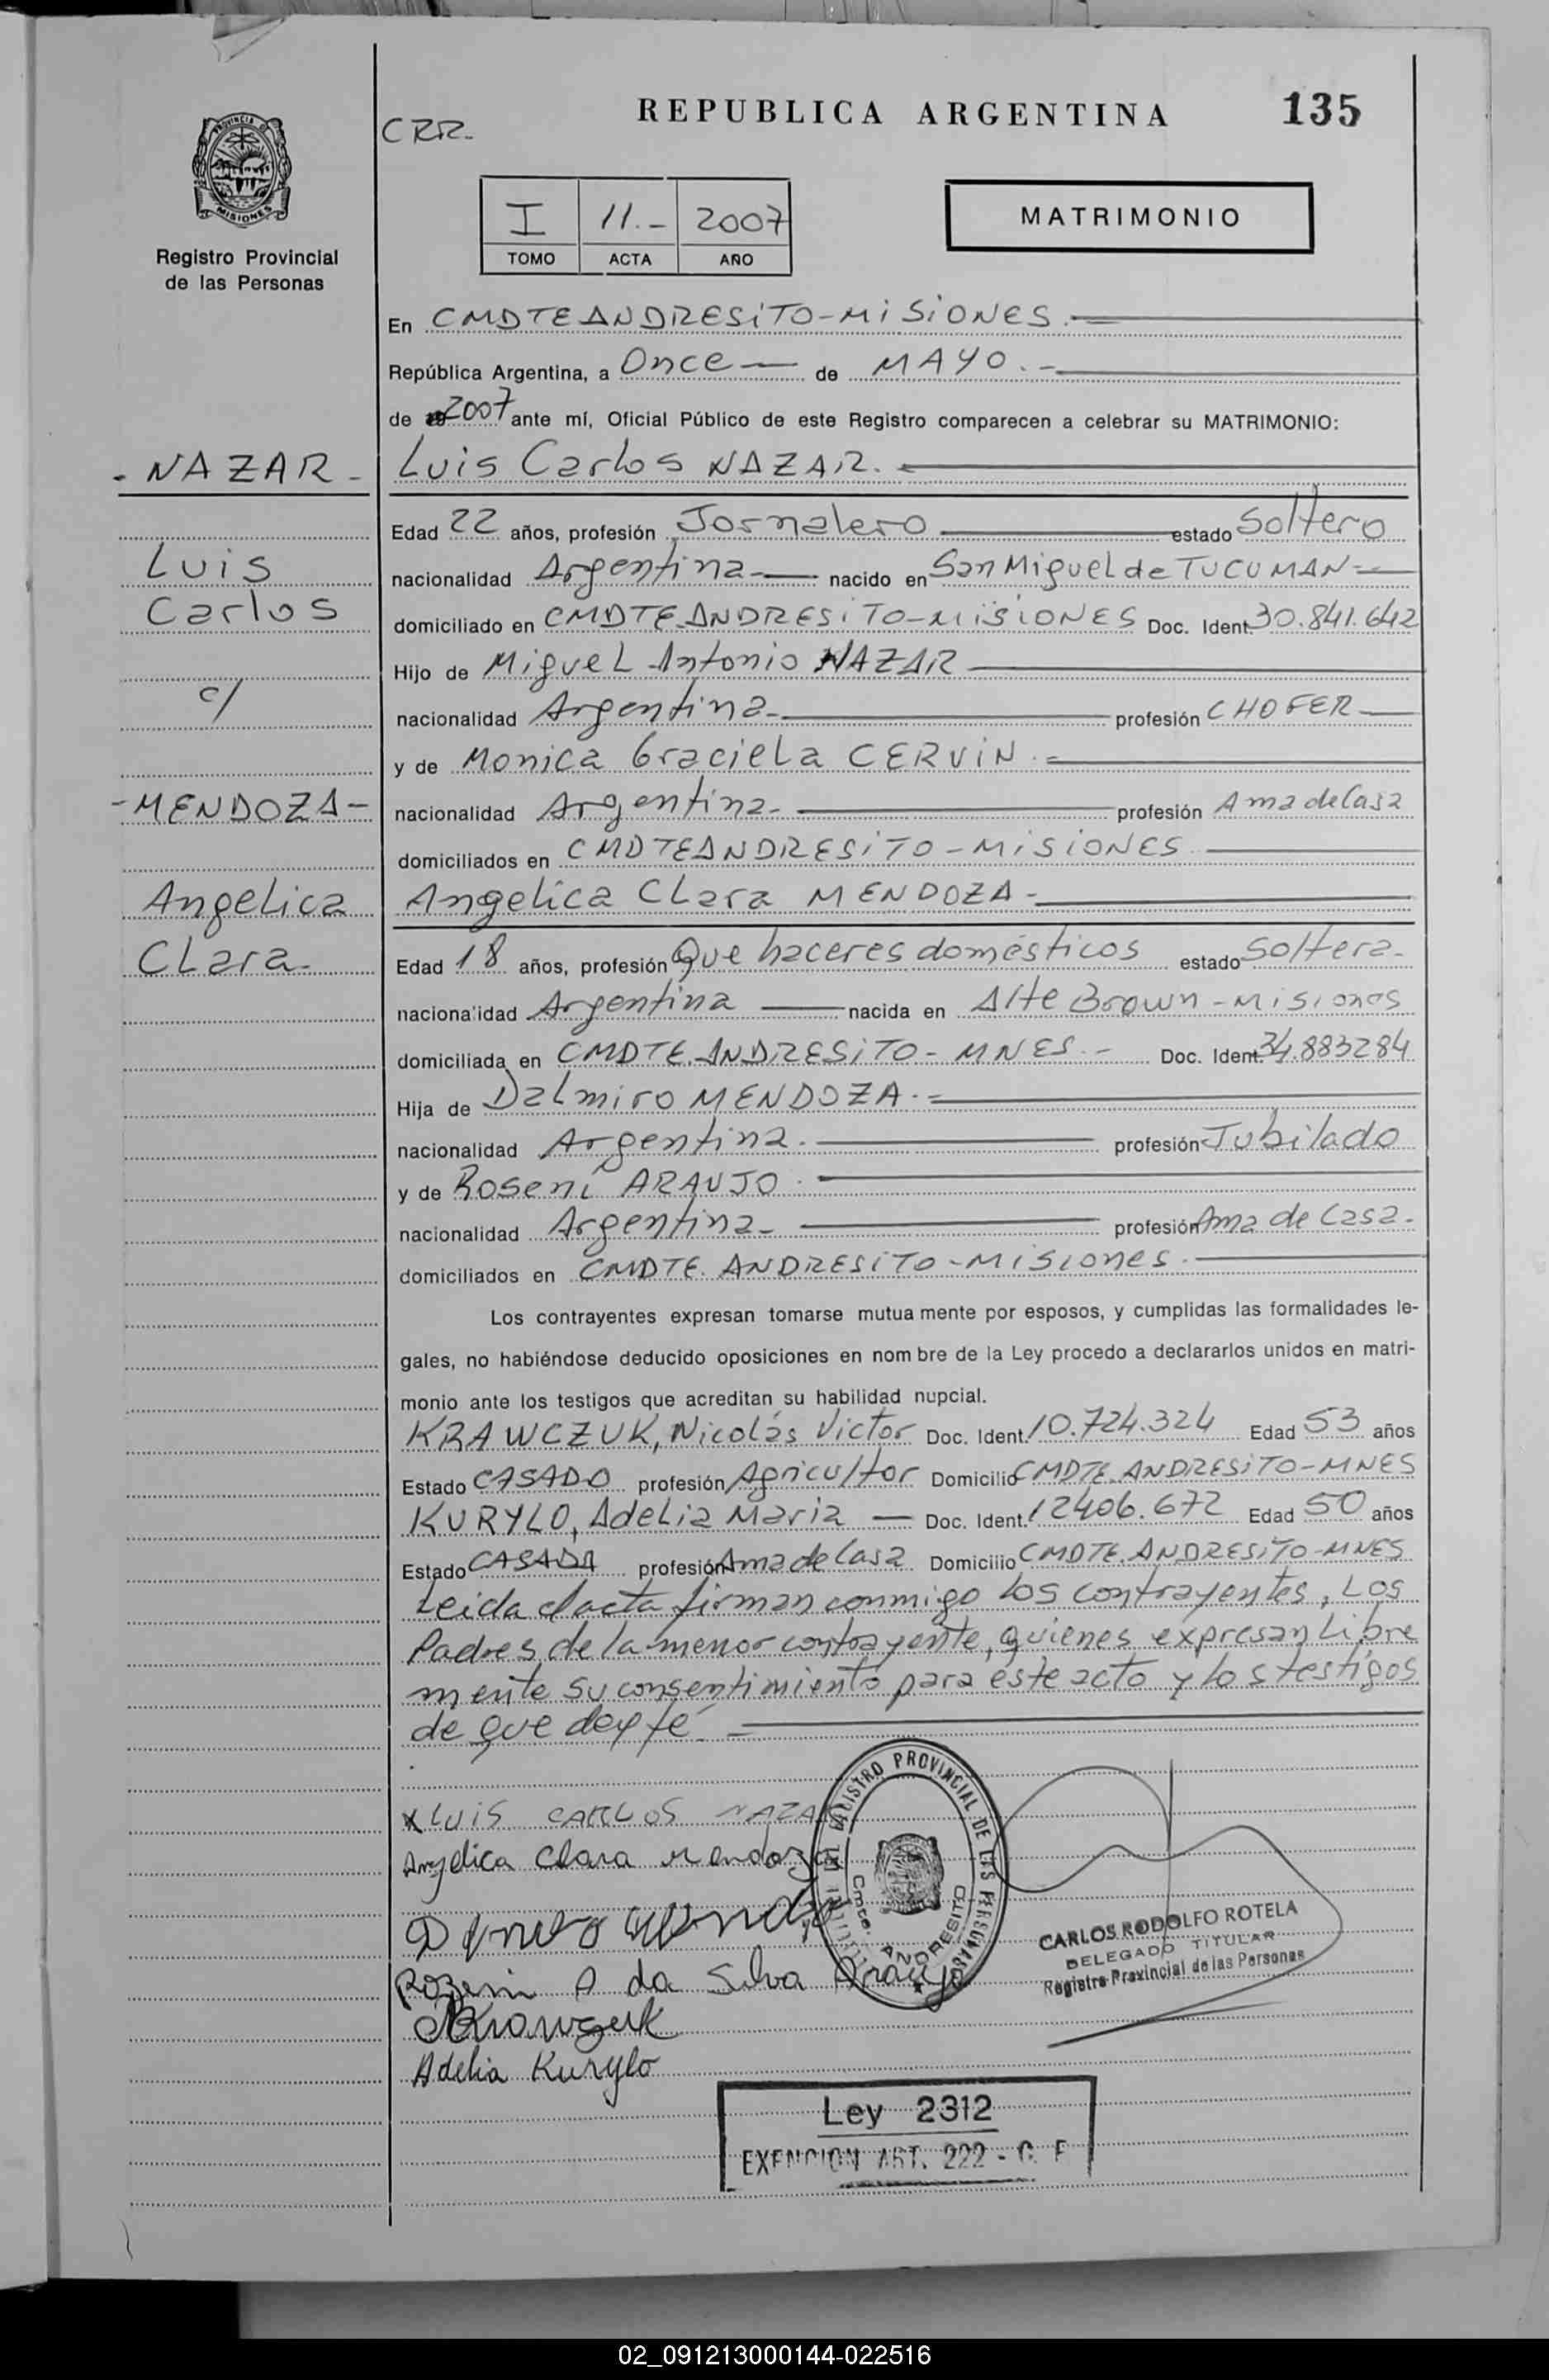 REPUBLICA ARGENTINA
135
CRR.
PROVINCIA D
MISIONES
Registro Provincial
de las Personas
I 11.- 2007
TOMO ACTA AÑO
MATRIMONIO
En CMDTE ANDRESiTO-MiSiONES.
República Argentina, a Once de MAYO.-
de 2007 ante mí, Oficial Público de este Registro comparecen a celebrar su MATRIMONIO:
- NAZAR -
Luis Carlos NAZAR.
Edad 22 años, profesión Jornalero estado Soltero
Luis
nacionalidad Argentina nacido en San Miguel de TUCUMAN
Carlos
domiciliado en CMDTE ANDRESiTO-MiSiONES Doc. Ident. 30.841.642
Hijo de Miguel Antonio NAZAR
c/
nacionalidad Argentina profesión CHOFER
y de Monica Graciela CERViN.
- MENDOZA -
nacionalidad Argentina profesión Ama de Casa
domiciliados en CMDTE ANDRESiTO-MiSiONES.
Angelica
Angelica Clara MENDOZA
Clara
Edad 18 años, profesión Que haceres domésticos estado Soltera
nacionalidad Argentina nacida en Alte Brown-Misiones
domiciliada en CMDTE. ANDRESiTO-MNES.- Doc. Ident. 34.883284
Hija de Dalmiro MENDOZA.
nacionalidad Argentina. profesión Jubilado
y de Roseni ARAUJO.
nacionalidad Argentina profesión Ama de Casa.
domiciliados en CMDTE. ANDRESiTO-Misiones.
Los contrayentes expresan tomarse mutua mente por esposos, y cumplidas las formalidades le-
gales, no habiéndose deducido oposiciones en nom bre de la Ley procedo a declararlos unidos en matri-
monio ante los testigos que acreditan su habilidad nupcial.
KRAWCZUK, Nicolás Victor Doc. Ident. 10.724.324 Edad 53 años
Estado CASADO profesión Agricultor Domicilio CMDTE. ANDRESiTO-MNES
KURYLO, Adelia Maria Doc. Ident. 12406.672 Edad 50 años
Estado CASADA profesión Ama de Casa Domicilio CMDTE. ANDRESiTO-MNES
Leida el acta firman conmigo los contrayentes, los
Padres de la menor contrayente, quienes expresan Libre
mente su consentimiento para éste acto y los testigos
de que doy fé
x LUiS CARLOS NAZAR
Angelica Clara Mendoza
Rozeni A da Silva Araujo
Krawczuk
Adelia Kurylo
REGISTRO PROVINCIAL DE LAS PERSONAS
Cmte. ANDRESITO
CARLOS RODOLFO ROTELA
DELEGADO TITULAR
Registro Provincial de las Personas
Ley 2312
EXENCION ART. 222 - C. F.
02_091213000144-022516